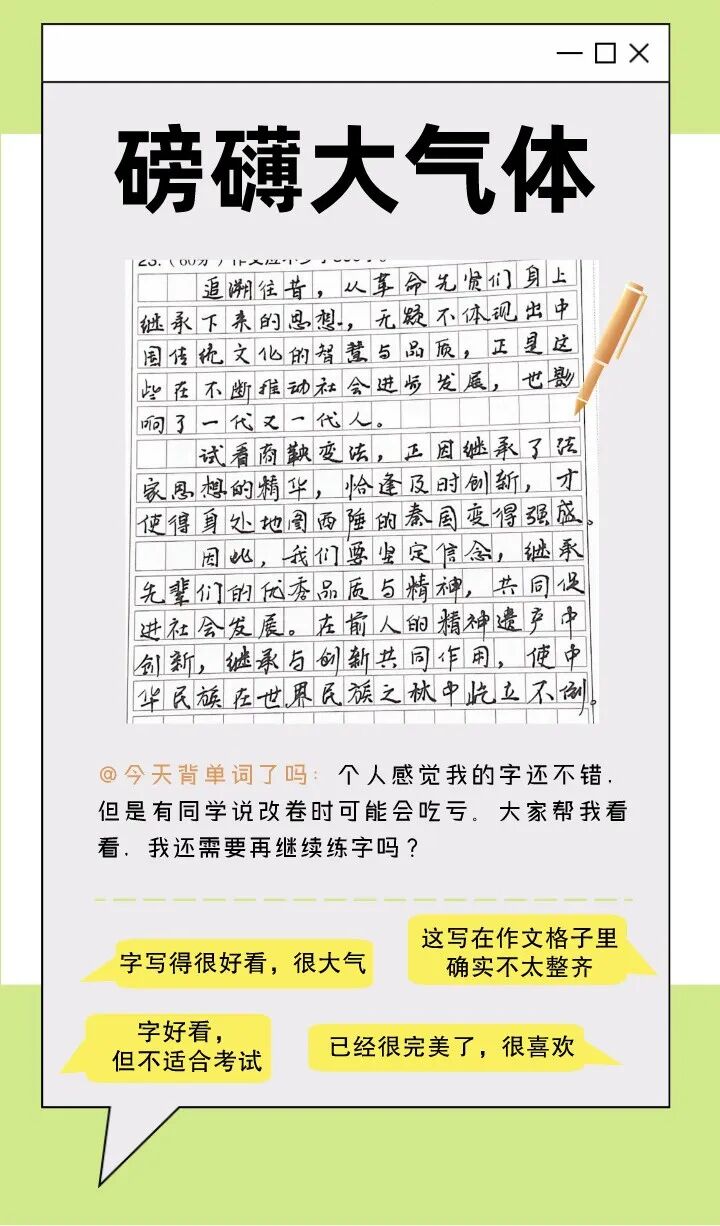 磅礴大气体
23.（60分）作文应不少于800字。
追溯往昔，从革命先贤们身上
继承下来的思想，无疑不体现出中
国传统文化的智慧与品质，正是这
些在不断推动社会进步发展，也影
响了一代又一代人。
试看商鞅变法，正因继承了法
家思想的精华，恰逢及时创新，才
使得身处地图西陲的秦国变得强盛。
因此，我们要坚定信念，继承
先辈们的优秀品质与精神，共同促
进社会发展。在前人的精神遗产中
创新，继承与创新共同作用，使中
华民族在世界民族之林中屹立不倒。
@今天背单词了吗：个人感觉我的字还不错，
但是有同学说改卷时可能会吃亏。大家帮我看
看，我还需要再继续练字吗？
字写得很好看，很大气
这写在作文格子里
确实不太整齐
字好看，
但不适合考试
已经很完美了，很喜欢